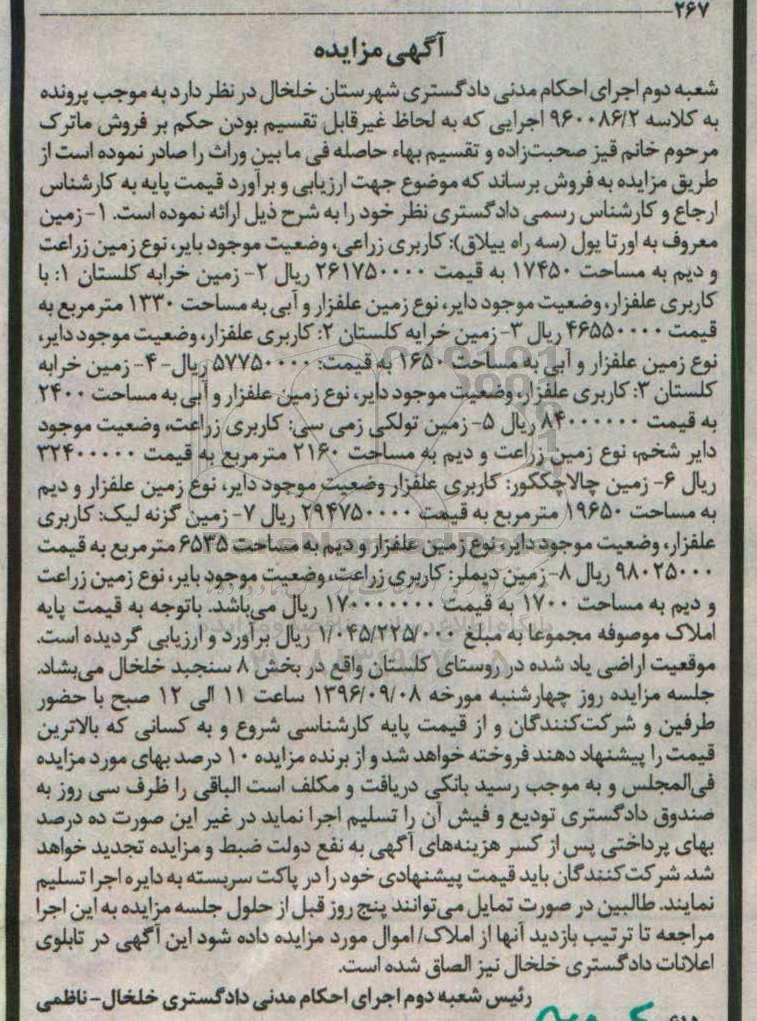 ۲۶۷
آگهی مزایده
شعبه دوم اجرای احکام مدنی دادگستری شهرستان خلخال در نظر دارد به موجب پرونده
به کلاسه ۹۶۰۰۸۶/۲ اجرایی که به لحاظ غیرقابل تقسیم بودن حکم بر فروش ماترک
مرحوم خانم قیز صحبت‌زاده و تقسیم بهاء حاصله فی ما بین وراث را صادر نموده است از
طریق مزایده به فروش برساند که موضوع جهت ارزیابی و برآورد قیمت پایه به کارشناس
ارجاع و کارشناس رسمی دادگستری نظر خود را به شرح ذیل ارائه نموده است. ۱- زمین
معروف به اورتا یول (سه راه ییلاق): کاربری زراعی، وضعیت موجود بایر، نوع زمین زراعت
و دیم به مساحت ۱۷۴۵۰ به قیمت ۲۶۱۷۵۰۰۰۰ ریال ۲- زمین خرابه کلستان ۱: با
کاربری علفزار، وضعیت موجود دایر، نوع زمین علفزار و آبی به مساحت ۱۳۳۰ مترمربع به
قیمت ۴۶۵۵۰۰۰۰ ریال ۳- زمین خرابه کلستان ۲: کاربری علفزار، وضعیت موجود دایر،
نوع زمین علفزار و آبی به مساحت ۱۶۵۰ به قیمت: ۵۷۷۵۰۰۰۰ ریال- ۴- زمین خرابه
کلستان ۳: کاربری علفزار، وضعیت موجود دایر، نوع زمین علفزار و آبی به مساحت ۲۴۰۰
به قیمت ۸۴۰۰۰۰۰۰ ریال ۵- زمین تولکی زمی سی: کاربری زراعت، وضعیت موجود
دایر شخم، نوع زمین زراعت و دیم به مساحت ۲۱۶۰ مترمربع به قیمت ۳۲۴۰۰۰۰۰
ریال ۶- زمین چالاچککور: کاربری علفزار وضعیت موجود دایر، نوع زمین علفزار و دیم
به مساحت ۱۹۶۵۰ مترمربع به قیمت ۲۹۴۷۵۰۰۰۰ ریال ۷- زمین گزنه لیک: کاربری
علفزار، وضعیت موجود دایر، نوع زمین علفزار و دیم به مساحت ۶۵۳۵ مترمربع به قیمت
۹۸۰۲۵۰۰۰ ریال ۸- زمین دیملر: کاربری زراعت، وضعیت موجود بایر، نوع زمین زراعت
و دیم به مساحت ۱۷۰۰ به قیمت ۱۷۰۰۰۰۰۰۰ ریال می‌باشد. باتوجه به قیمت پایه
املاک موصوفه مجموعا به مبلغ ۱/۰۴۵/۲۲۵/۰۰۰ ریال برآورد و ارزیابی گردیده است.
موقعیت اراضی یاد شده در روستای کلستان واقع در بخش ۸ سنجبد خلخال می‌بشاد.
جلسه مزایده روز چهارشنبه مورخه ۱۳۹۶/۰۹/۰۸ ساعت ۱۱ الی ۱۲ صبح با حضور
طرفین و شرکت‌کنندگان و از قیمت پایه کارشناسی شروع و به کسانی که بالاترین
قیمت را پیشنهاد دهند فروخته خواهد شد و از برنده مزایده ۱۰ درصد بهای مورد مزایده
فی‌المجلس و به موجب رسید بانکی دریافت و مکلف است الباقی را ظرف سی روز به
صندوق دادگستری تودیع و فیش آن را تسلیم اجرا نماید در غیر این صورت ده درصد
بهای پرداختی پس از کسر هزینه‌های آگهی به نفع دولت ضبط و مزایده تجدید خواهد
شد. شرکت‌کنندگان باید قیمت پیشنهادی خود را در پاکت سربسته به دایره اجرا تسلیم
نمایند. طالبین در صورت تمایل می‌توانند پنج روز قبل از حلول جلسه مزایده به این اجرا
مراجعه تا ترتیب بازدید آنها از املاک/ اموال مورد مزایده داده شود این آگهی در تابلوی
اعلانات دادگستری خلخال نیز الصاق شده است.
رئیس شعبه دوم اجرای احکام مدنی دادگستری خلخال- ناظمی